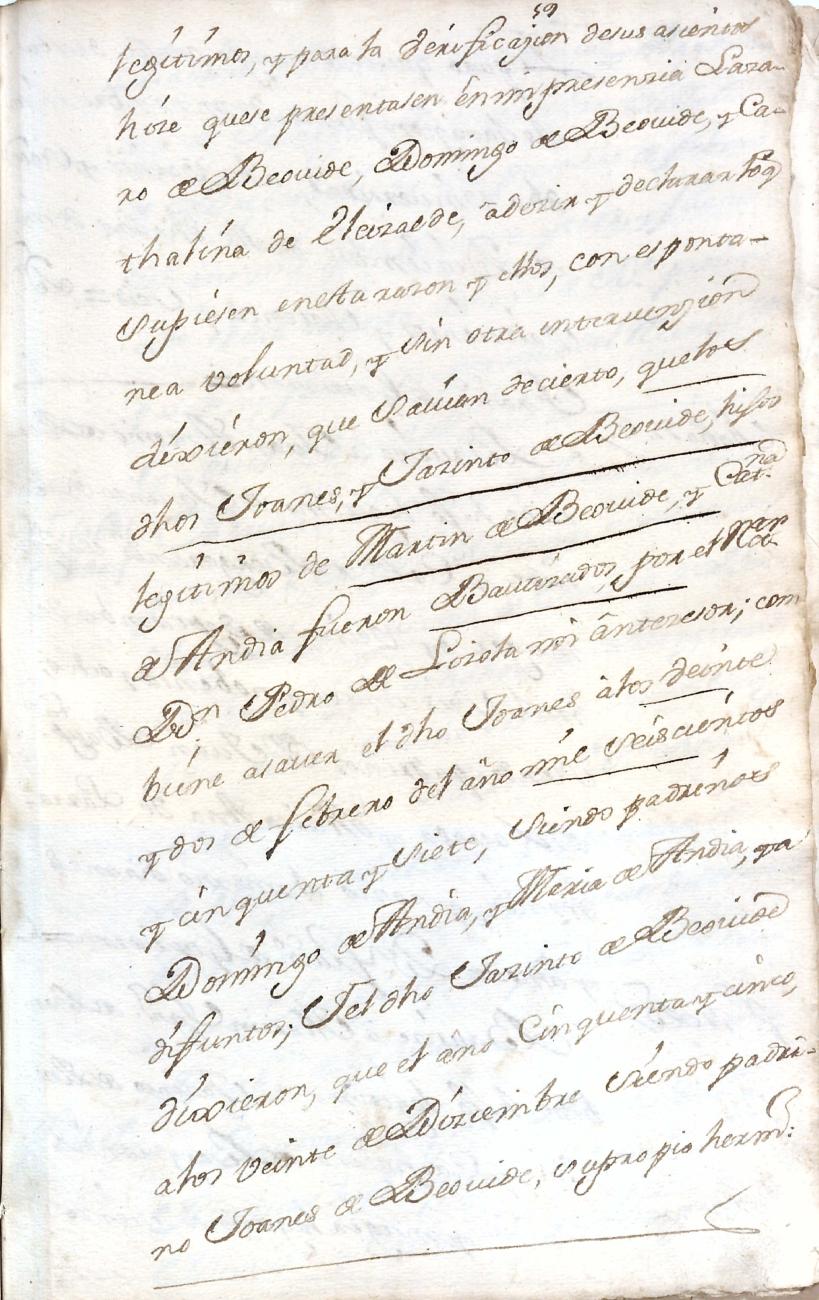 59
legítimos, y para la verificazion desus asientos
hize quese presentasen enmi presenzia Laza-
ro de Beovide, Domingo de Beovide, y Ca-
thalina de Eleizalde, a dezir y declarar loq
Supiesen enesta razon y ellos, con esponta-
nea voluntad, y sin otra intervenzion
dixieron, que Savian decierto, quelos
dhos Joanes, y Jazinto de Beovide, hijos
legítimos de Martin de Beovide, y Catna
de Andia fueron Bautizados, por el Ror
Dn Pedro de Loiola mi antezesor; com
biene asaver el dho Joanes alos veinte
y dos de febrero del año mil seiscientos
y cinquenta y Siete, Siendo padrinos
Domingo de Andia, y Maria de Andia, ya
difuntos; Jel dho Jazinto de Beovide
dixieron, que el año Cinquenta y cinco,
alos veinte de Diziembre Siendo padri-
no Joanes de Beovide, supropio herm: